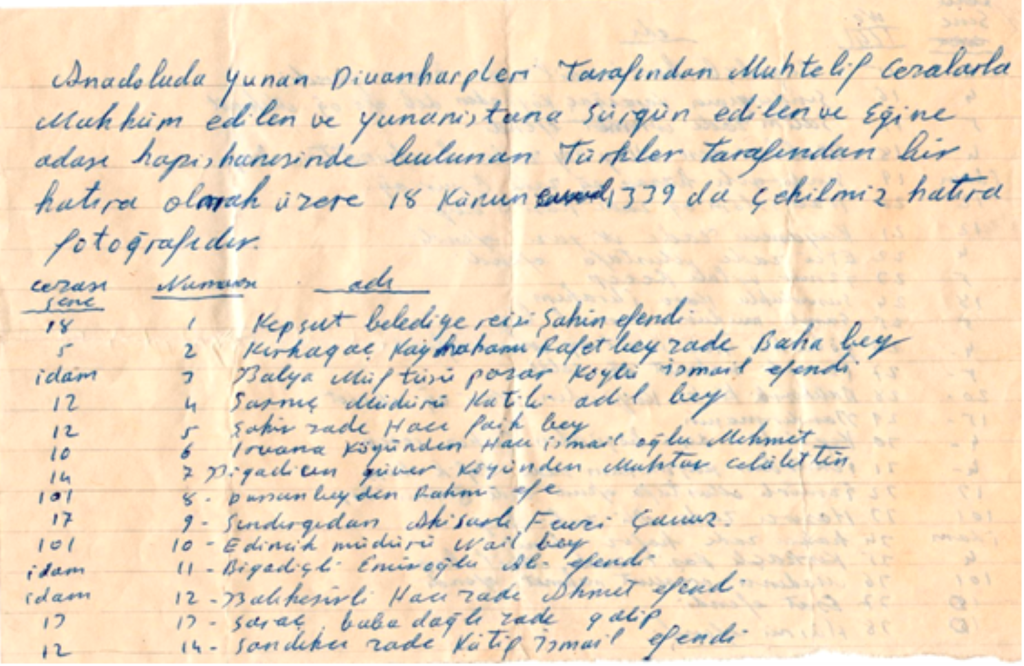 Anadoluda Yunan Divanharpleri Tarafından Muhtelif Cezalarla
Mahküm edilen ve yunanistana Sürgün edilen ve Eğine
adası hapishanesinde bulunan Türkler tarafından bir
hatıra olmak üzere 18 Kânun 1339 da çekilmiz hatıra
fotoğrafıdır.
cezası Numarası adı
sene
18 1 Kepsut belediye reisi Şahin efendi
5 2 Kırkagaç Kaymakamı Rafet bey zade Baha bey
idam 3 Balya Müftüsü pazar Köylü ismail efendi
12 4 Müdürü Katibi adil bey
12 5 Şahir zade Hacı faik bey
10 6 Irvana Köyünden Hacı ismail oğlu Mehmet
14 7 Bigadicen güver Köyünden Muhtar celalettin
101 8 - Dursunbeyden Rahmi efe
17 9 - Sındırgıdan Akisarlı Fevzi Çavuz
101 10 - Edincik müdürü Nail bey
idam 11 - Bigadiçli Eminoğlu Ali efendi
idam 12 - Balıkesirli Hacı zade Ahmet efendi
17 13 - Saraç baba dağlı zade galip
12 14 - Sandıkcı zade Kâtip ismail efendi